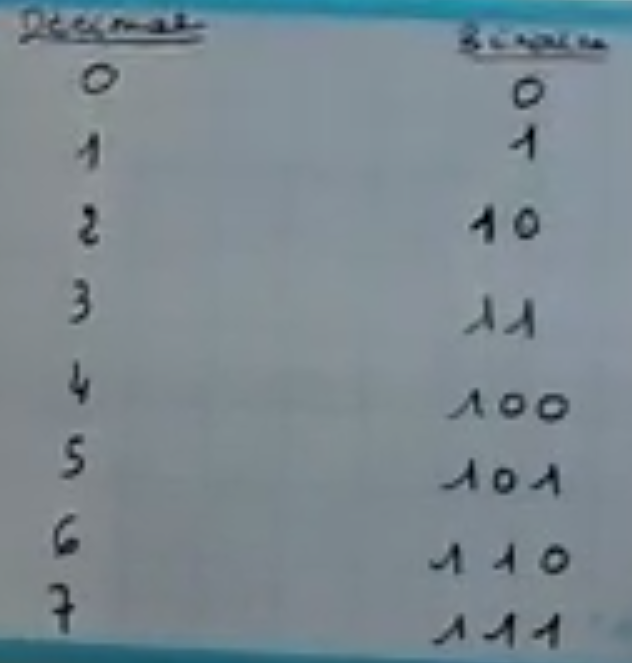 Decimal Binaire
0 0
1 1
2 10
3 11
4 100
5 101
6 110
7 111